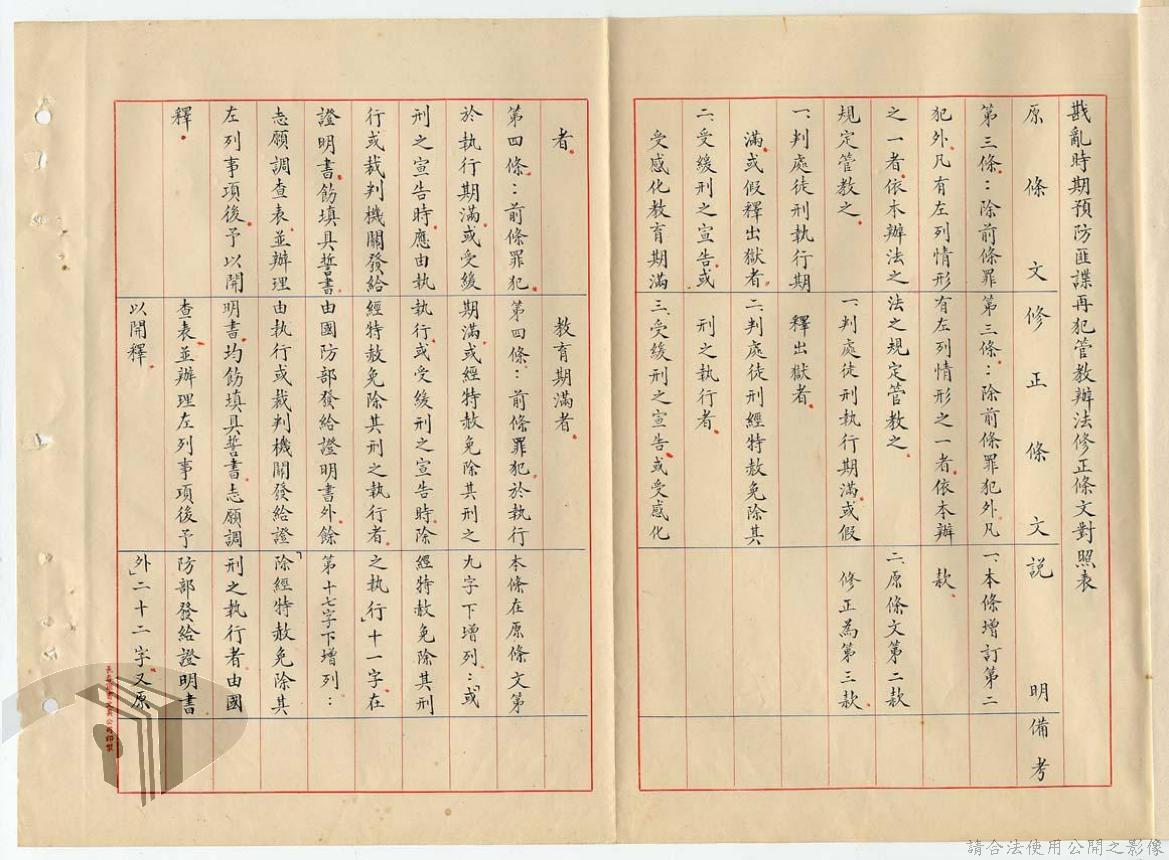 戡亂時期預防匪諜再犯管教辦法修正條文對照表
原條文
第三條：除前條罪
犯外，凡有左列情形
之一者，依本辦法之
規定管教之。
一、判處徒刑執行期
滿，或假釋出獄者。
二、受緩刑之宣告，或
受感化教育期滿
修正條文
第三條：除前條罪犯外，凡
有左列情形之一者，依本辦
法之規定管教之。
一、判處徒刑執行期滿，或假
釋出獄者。
二、判處徒刑經特赦免除其
刑之執行者。
三、受緩刑之宣告，或受感化
說明
一、本條增訂第二
款。
二、原條文第二款
修正為第三款。
備考
者。
第四條：前條罪犯，
於執行期滿，或受緩
刑之宣告時，應由執
行或裁判機關發給
證明書，飭填具誓書，
志願調查表，並辦理
左列事項後，予以開
釋。
教育期滿者。
第四條：前條罪犯，於執行
期滿，或經特赦免除其刑之
執行，或受緩刑之宣告時，除
經特赦免除其刑之執行者，
由國防部發給證明書外，餘
由執行或裁判機關發給證
明書，均飭填具誓書，志願調
查表，並辦理左列事項後，予
以開釋。
本條在原條文第
九字下增列：「或
經特赦免除其刑
之執行」十一字，在
第十七字下增列：
「除經特赦免除其
刑之執行者，由國
防部發給證明書
外」二十二字，又原
請合法使用公開之影像